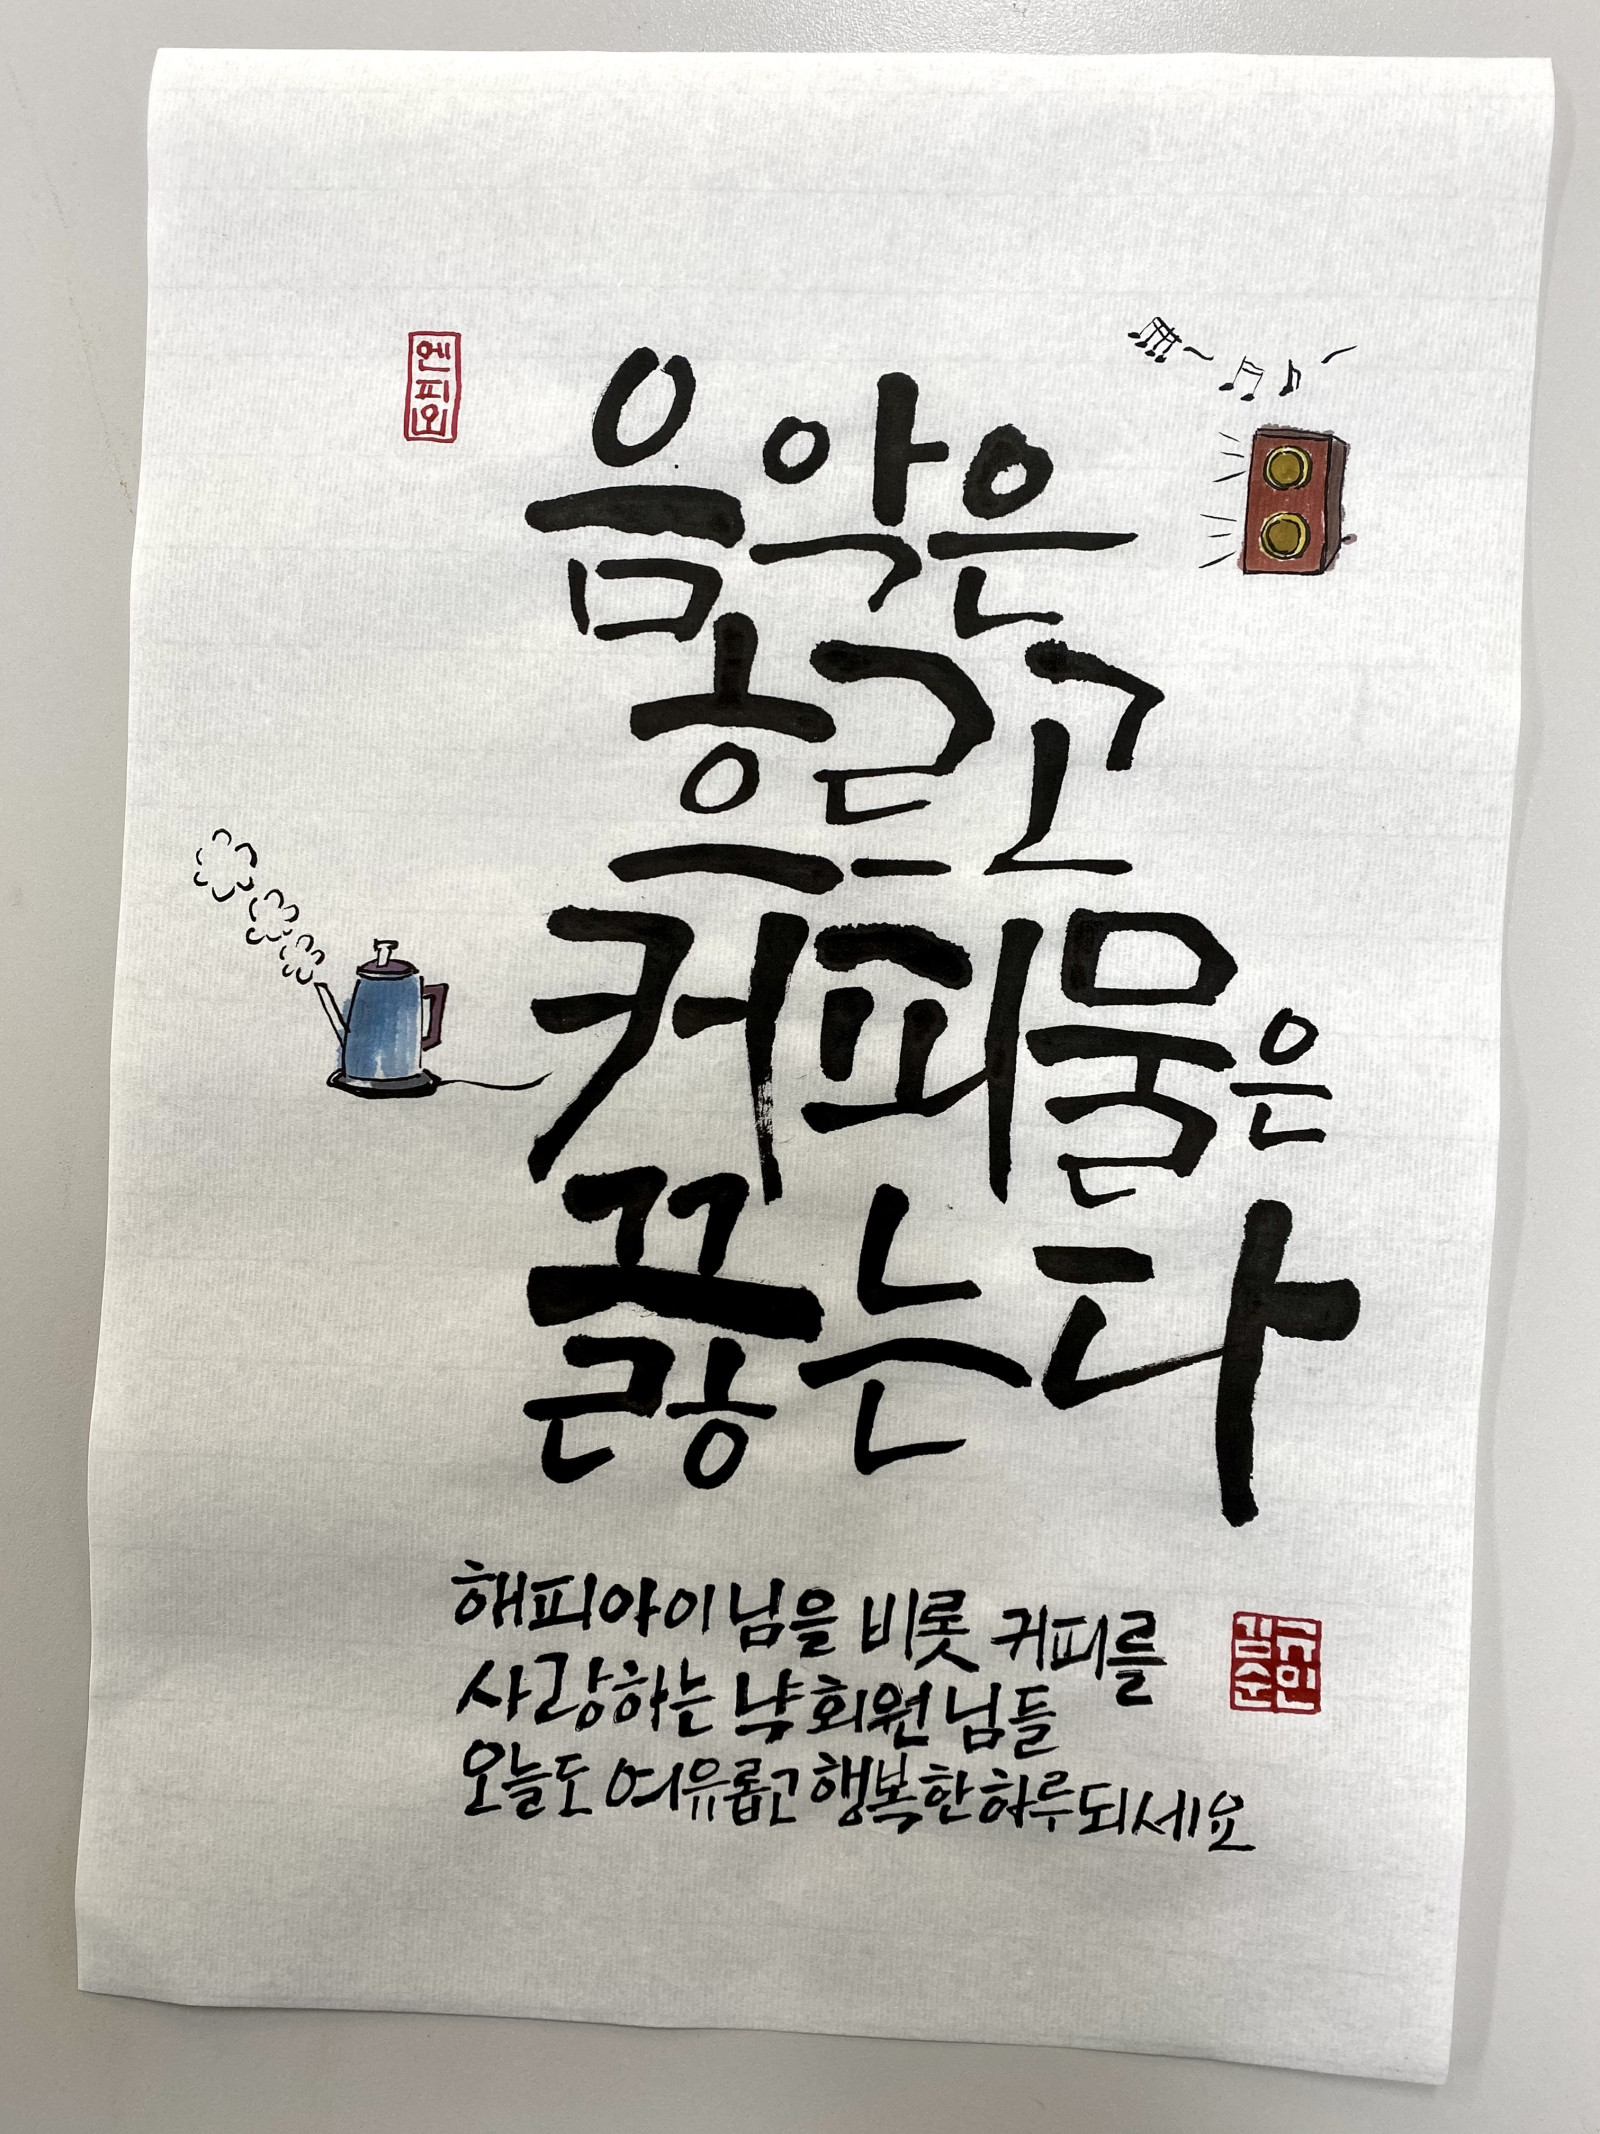 음악은
흐르고
커피물은
끓는다
해피아이님을 비롯 커피를
사랑하는 냑회원님들
오늘도 여유롭고 행복한 하루되세요